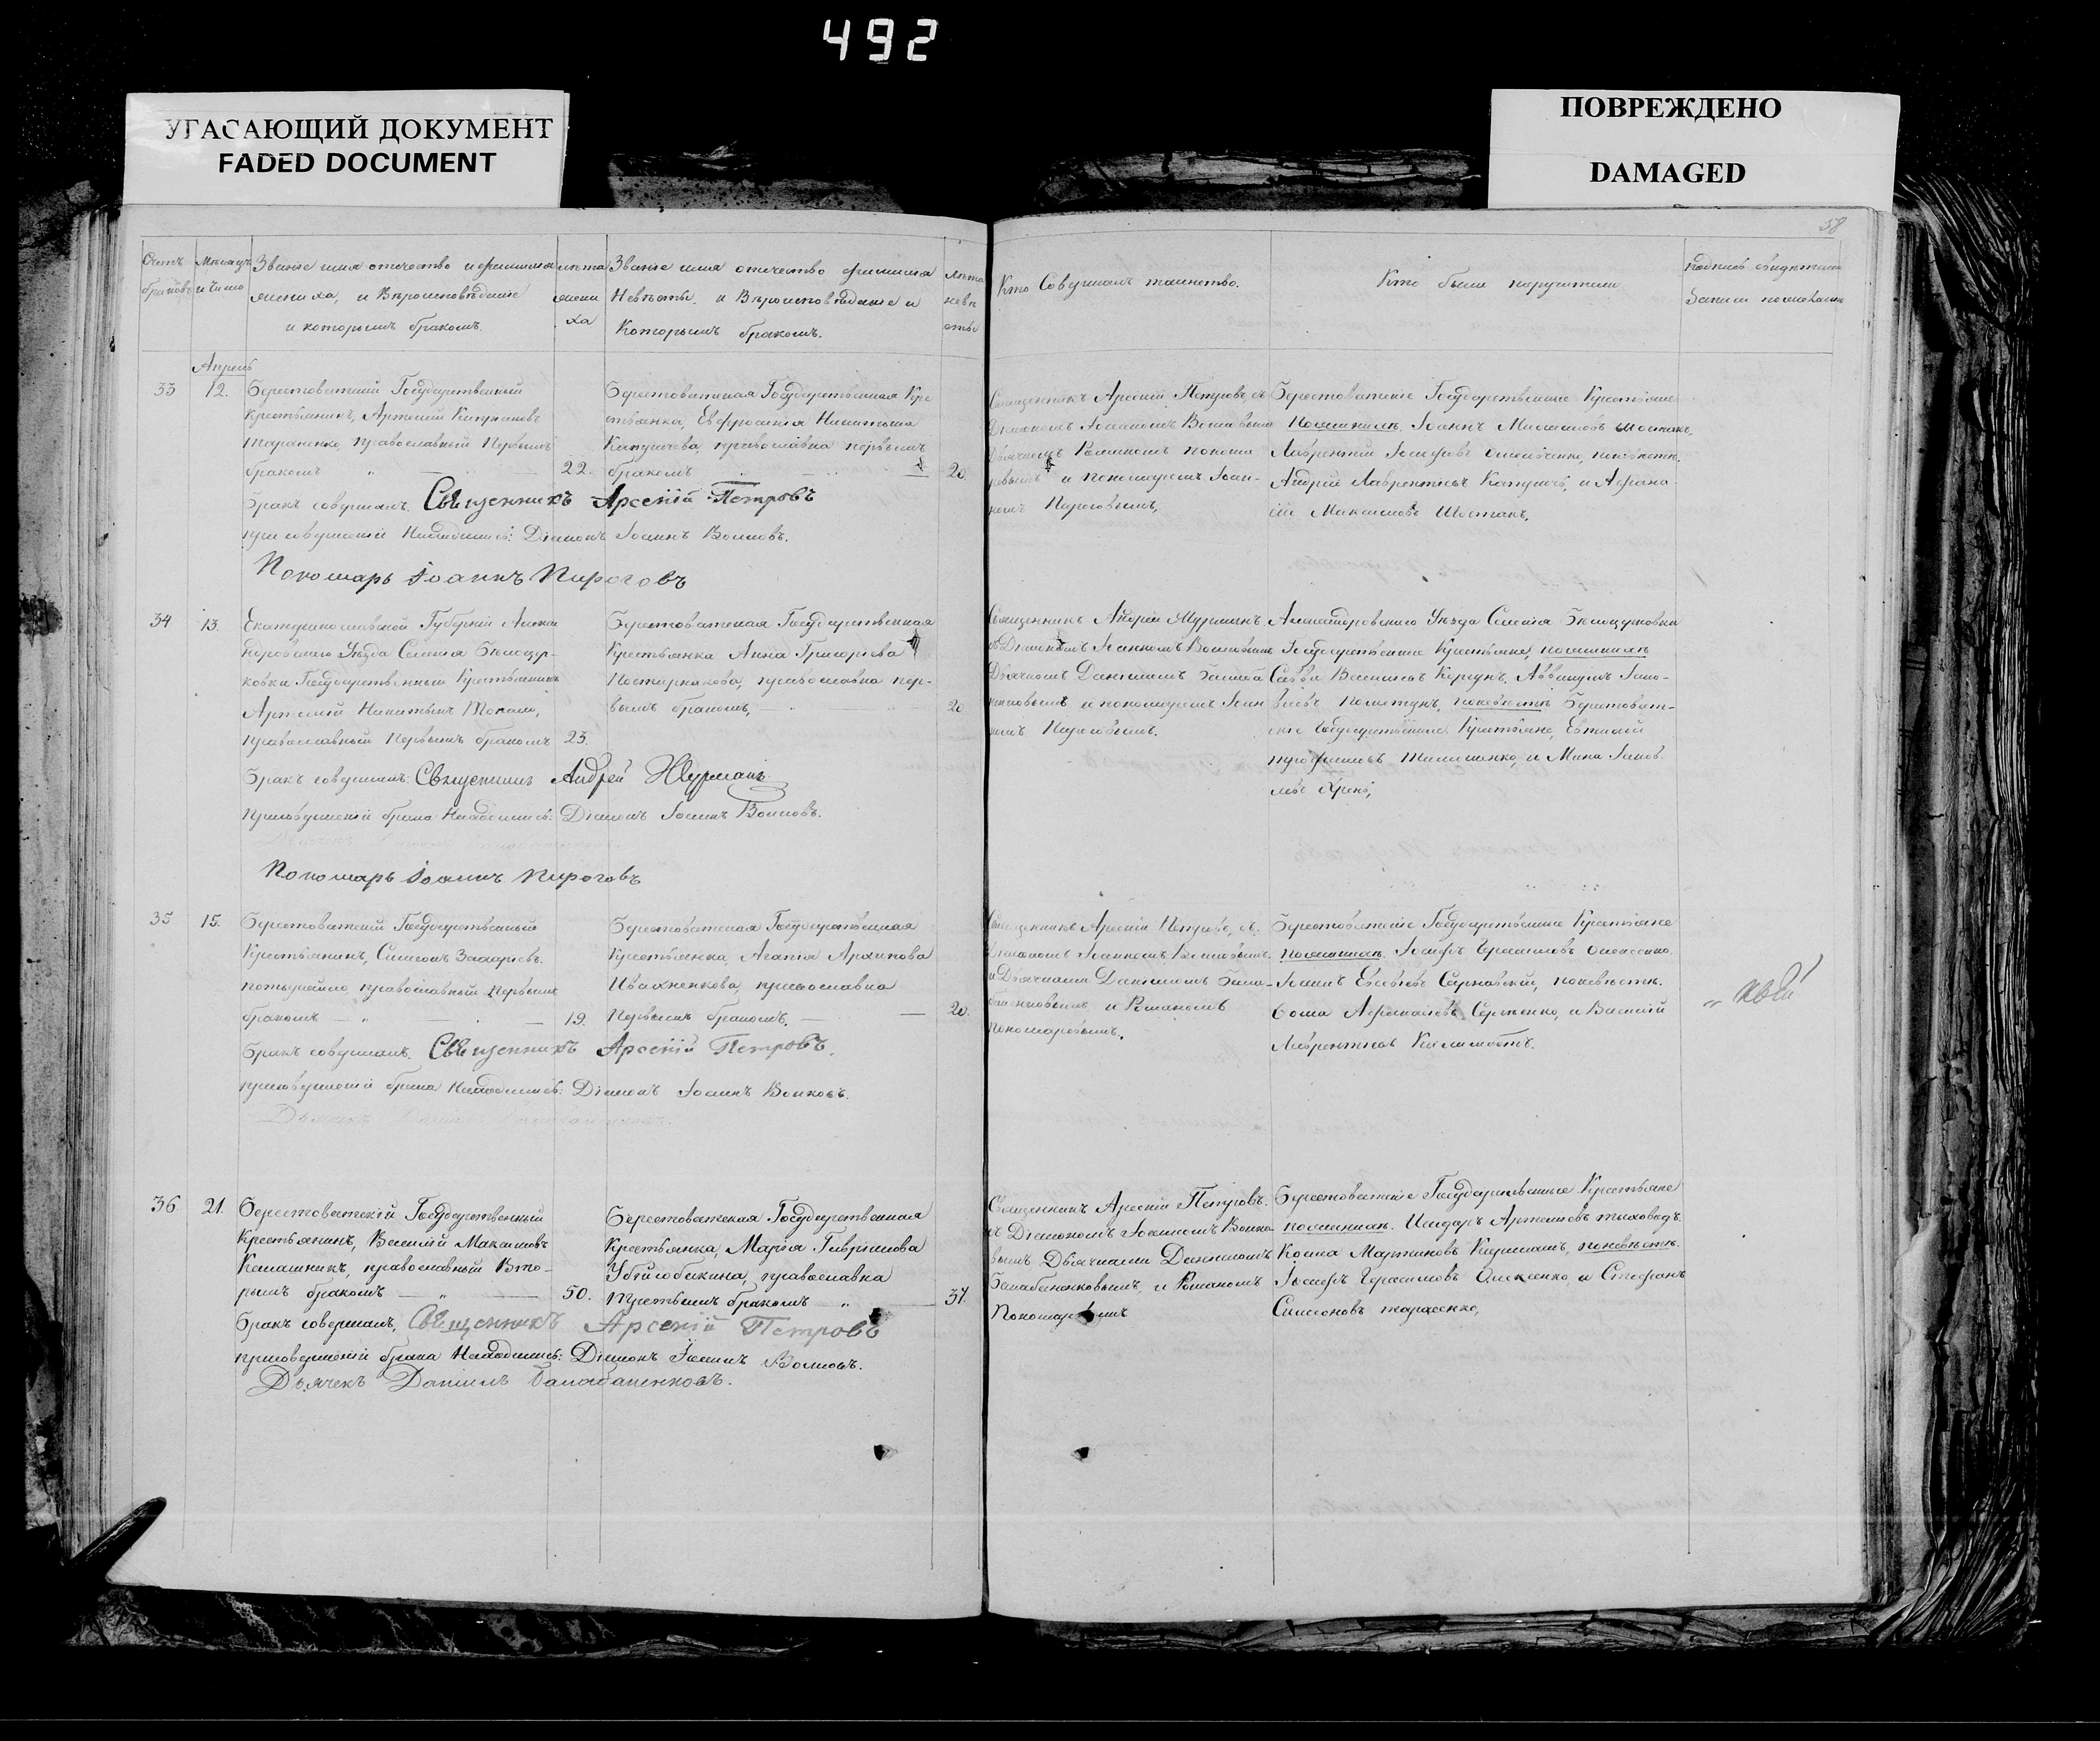 492
УГАСАЮЩИЙ ДОКУМЕНТ
FADED DOCUMENT
ПОВРЕЖДЕНО
DAMAGED
58
Счетъ браковъ
Мѣсяцъ и число
Званіе имя отечество и фамилія
жениха, и Вѣроисповѣданіе
и которымъ бракомъ.
лѣта жениха
Званіе имя отечество фамилія
Невѣсты. и Вѣроисповѣданіе и
Которымъ бракомъ.
лѣта невѣсты
Кто Совершалъ таинство.
Кто были поручители
Апрель
33
12.
Берестоватскій Государственный
Крестьянинъ, Артемій Кипріановъ
Тараненко, православный Первымъ
бракомъ
22.
Берестоватская Государственная Кре
стьянка, Евфросинія Никитина
православна первымъ
бракомъ
20.
Священникъ Арсеній Петровъ, съ
Діакономъ Іоанномъ Волковымъ
Дьячкомъ Романомъ Понома
ревымъ и пономаремъ Іоан-
номъ Пироговымъ.
Берестоватскіе Государственные Крестьяне
по женихѣ. Іоаннъ Шостакъ,
Лаврентій Іосифовъ по невѣстѣ.
Андрей Лаврентьевъ и Афана
сій Максимовъ Шостакъ.
Бракъ совершалъ. Священникъ Арсеній Петровъ
при совершеніи Находились: Діаконъ Іоаннъ Волковъ.
Пономарь Іоаннъ Пироговъ
34
13.
Екатеринославской Губерніи Алексан
дровскаго Уѣзда Селенія Бѣлоцер-
ковки Государственный Крестьянинъ
Артемій Никитинъ Токало,
православный Первымъ бракомъ
23.
Берестоватская Государственная
Крестьянка Анна Григорьева
православна пер-
вымъ бракомъ,
20
Священникъ Андрей Журманъ.
съ Діакономъ Іоанномъ Волковымъ
Дьячкомъ Даніиломъ Балаба
ненковымъ и пономаремъ Іоан
номъ Пироговымъ.
Александровскаго Уѣзда Селенія Бѣлоцерковки
Государственные Крестьяне, по женихѣ
Савва Васильевъ Аввакумъ Іако-
влевъ по невѣстѣ Берестоват-
скіе Государственные Крестьяне, Евтихій
Трофимовъ и Мина Іаков
левъ Хренъ,
Бракъ совершалъ: Священникъ Андрей Журманъ
При совершеніи брака Находились: Діаконъ Іоаннъ Волковъ.
Пономарь Іоаннъ Пироговъ
35
15.
Берестоватскій Государственный
Крестьянинъ, Симеонъ Захаріевъ.
православный Первымъ
бракомъ
19.
Берестоватская Государственная
Крестьянка, Агапія Архипова
Ивахненкова, православна
Первымъ бракомъ.
20.
Священникъ Арсеній Петровъ, съ.
Діакономъ Іоанномъ Волковымъ.
и Дьячками Даніиломъ Бала-
баненковымъ и Романомъ
Пономаревымъ.
Берестоватскіе Государственные Крестьяне
по женихѣ. Іосифъ Герасимовъ Олексенко.
Іоаннъ по невѣстѣ.
Фома Афанасьевъ и Василій
Лаврентіевъ
Бракъ совершалъ. Священникъ Арсеній Петровъ.
при совершеніи брака Находились: Діаконъ Іоаннъ Волковъ.
36
21.
Берестоватскій Государственный
Крестьянинъ, Василій Максимовъ
Калашникъ, православный Вто-
рымъ бракомъ
50.
Берестоватская Государственная
Крестьянка, Марія Гавріилова
Убійсобакина, православна
Третьимъ бракомъ
37.
Священникъ Арсеній Петровъ.
съ Діакономъ Іоанномъ Волко
вымъ Дьячками Даніиломъ
Балабаненковымъ, и Романомъ
Пономаревымъ
Берестоватскіе Государственные Крестьяне
по женихѣ. Исидоръ Артемьевъ
Косма Мартиновъ по невѣстѣ.
Іосифъ Герасимовъ Олексенко и Стефанъ
Симеоновъ Тарасенко,
Бракъ совершалъ, Священникъ Арсеній Петровъ
при совершеніи брака Находились: Діаконъ Іоаннъ Волковъ.
Дьячекъ Даніилъ Балабаненковъ.